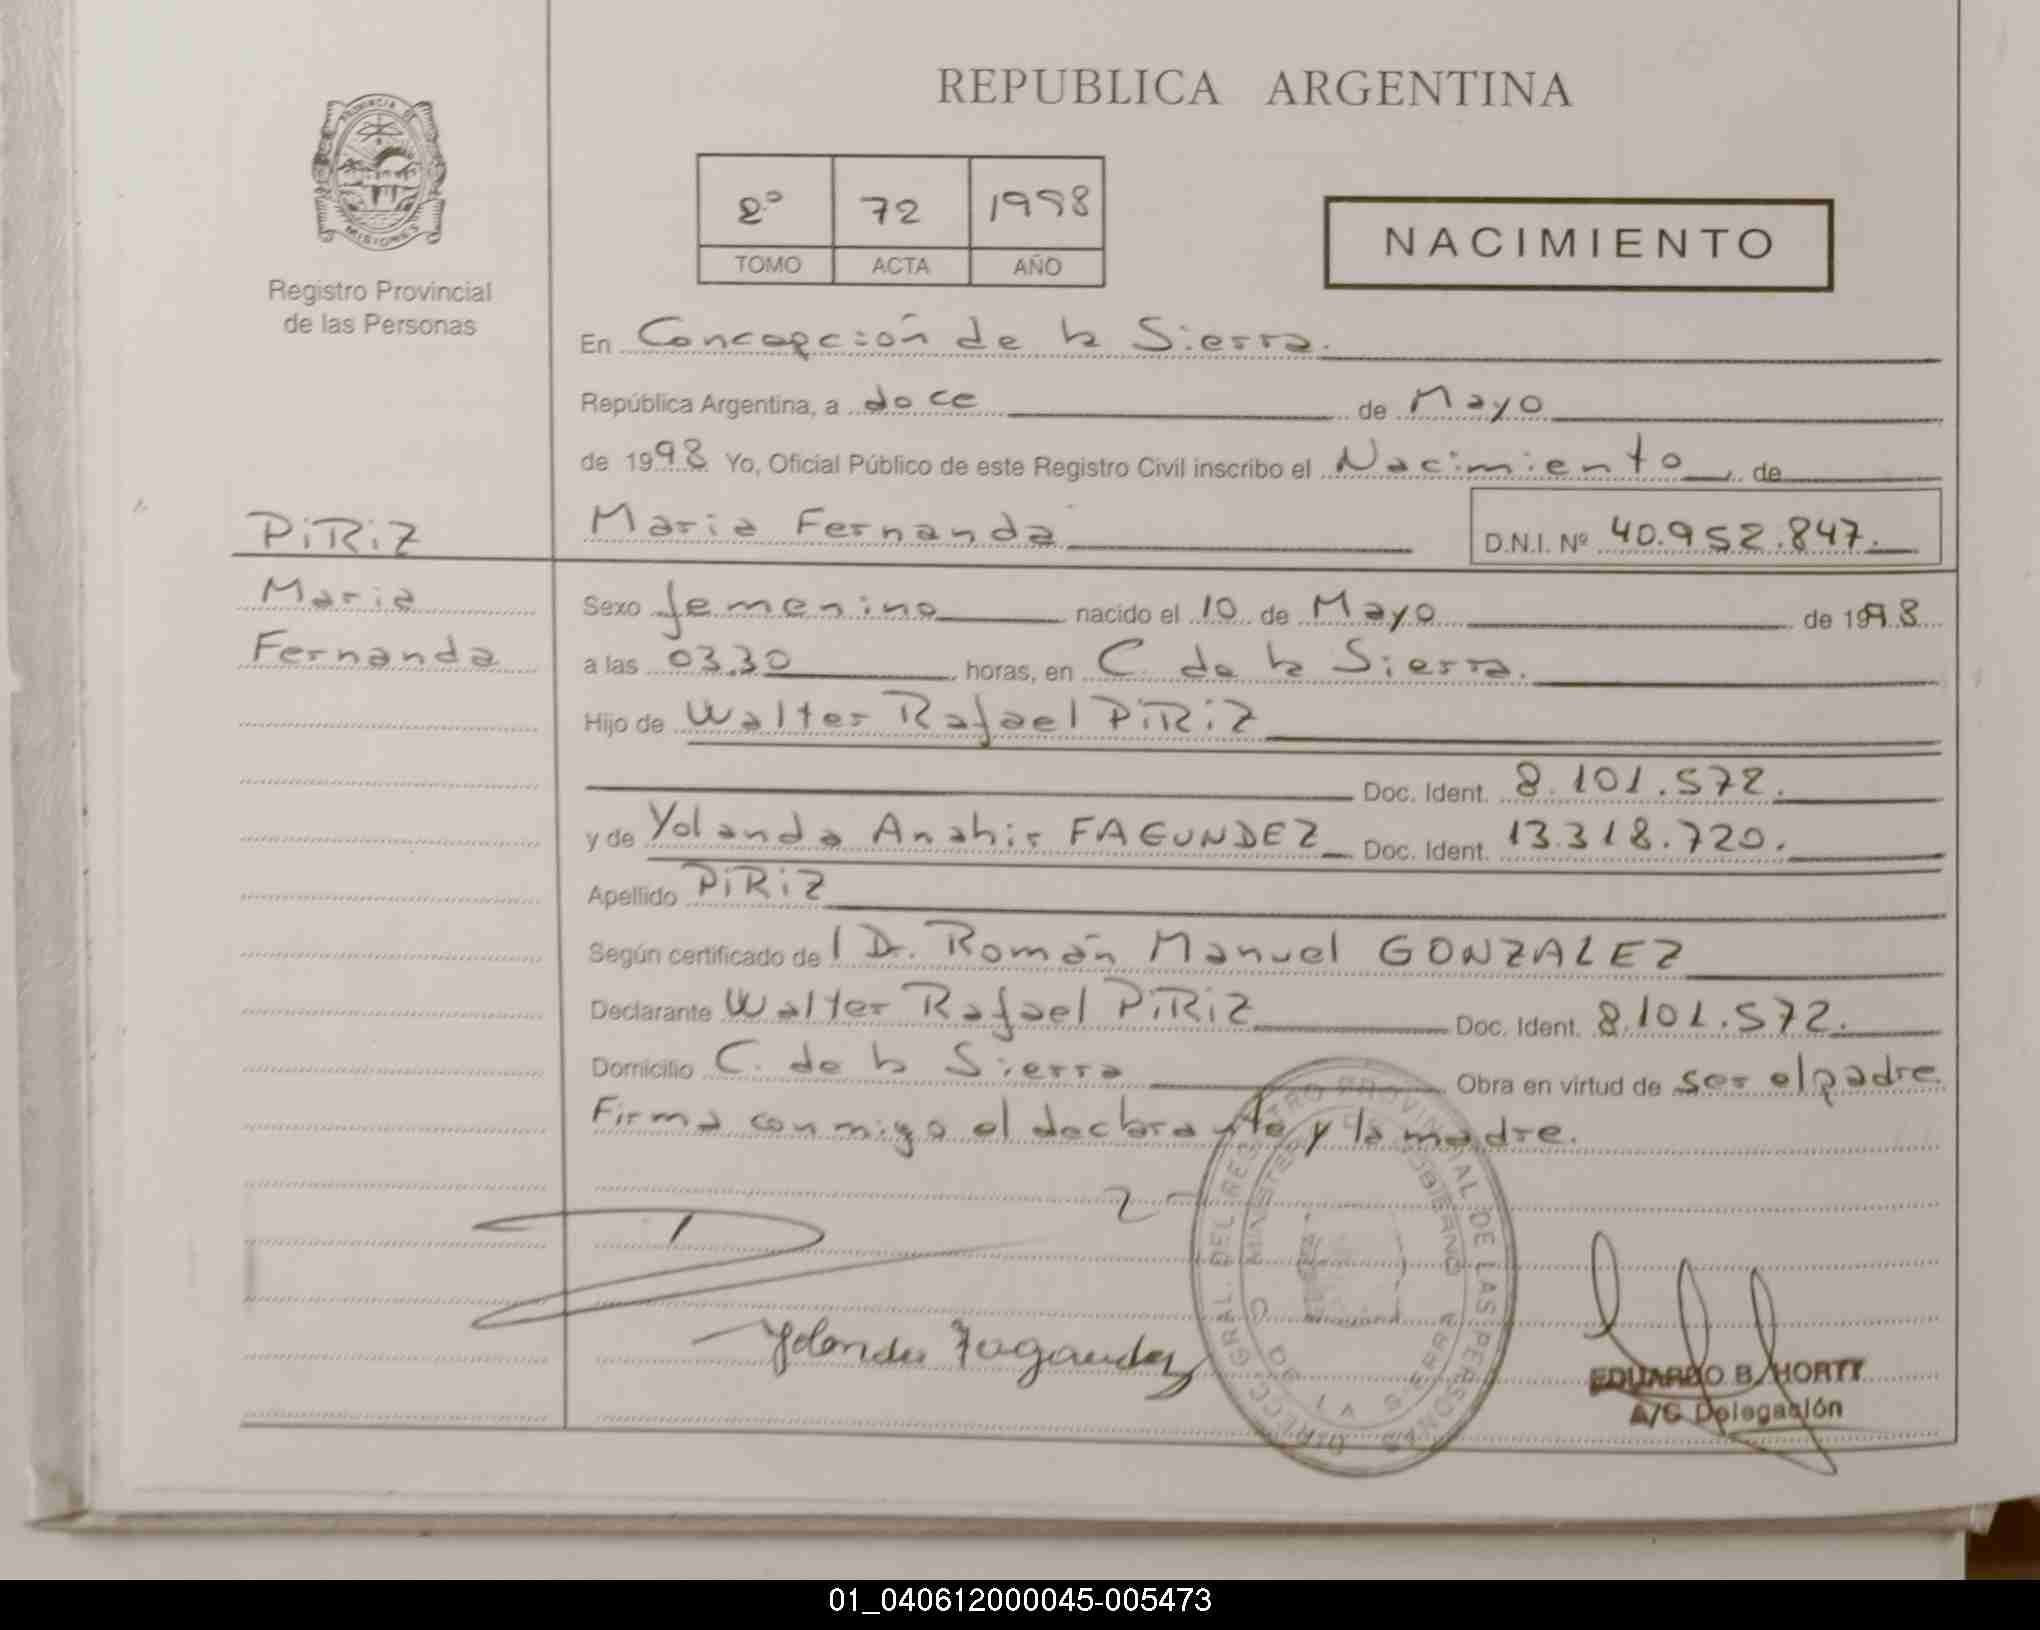 REPUBLICA ARGENTINA
PROVINCIA DE
MISIONES
Registro Provincial
de las Personas
2º 72 1998
TOMO ACTA AÑO
NACIMIENTO
En Concepción de la Sierra.
República Argentina, a doce de Mayo
de 1998 Yo, Oficial Público de este Registro Civil inscribo el Nacimiento, de
PiRiZ Maria Fernanda D.N.I. Nº 40.952.847.
Maria
Fernanda
Sexo femenino nacido el 10 de Mayo de 1998
a las 03.30 horas, en C. de la Sierra.
Hijo de Walter Rafael PiRiZ
Doc. Ident. 8.101.572.
y de Yolanda Anahir FAGUNDEZ Doc. Ident. 13.318.720.
Apellido PiRiZ
Según certificado del Dr. Román Manuel GONZALEZ
Declarante Walter Rafael PiRiZ Doc. Ident. 8.101.572.
Domicilio C. de la Sierra Obra en virtud de ser el padre
Firma conmigo el declarante y la madre.
Yolanda Fagundez
DIRECC. GRAL. DEL REGISTRO PROVINCIAL DE LAS PERSONAS
MINISTERIO GOBIERNO
C. DE LA SIERRA
EDUARDO B. HORTT
A/C Delegación
01_040612000045-005473